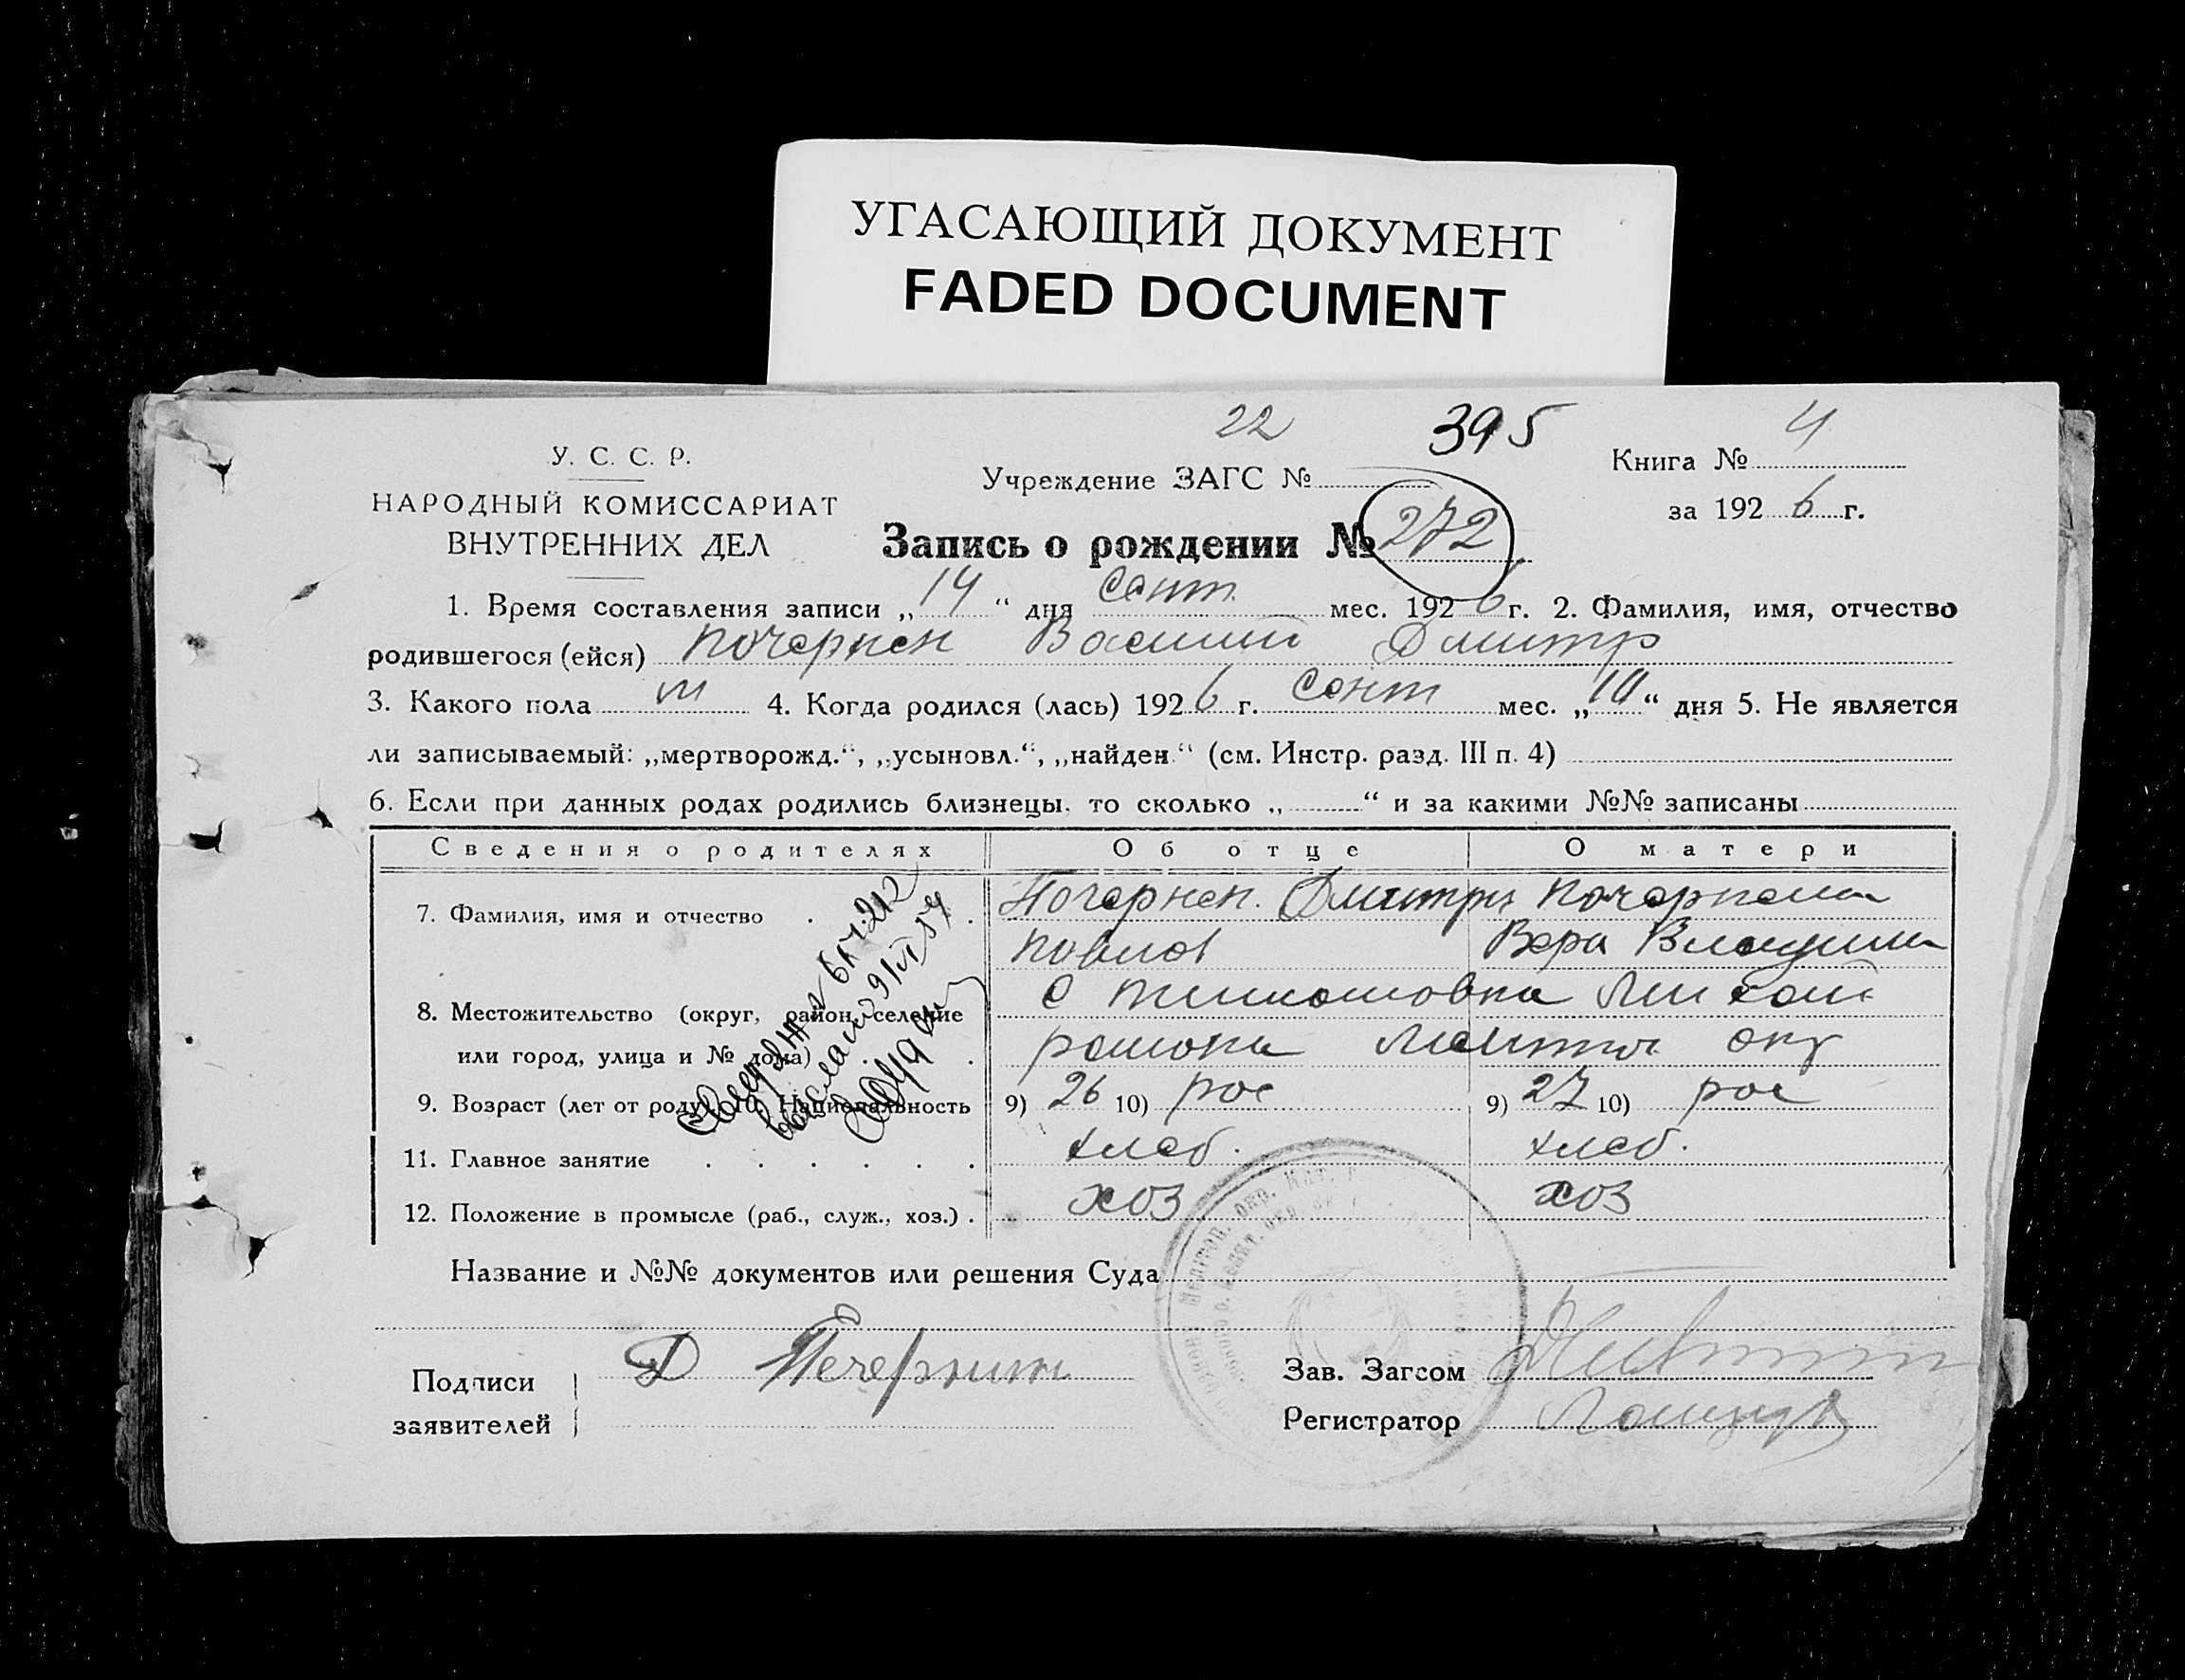 УГАСАЮЩИЙ ДОКУМЕНТ
FADED DOCUMENT
22 395 4
У. С. С. Р.
НАРОДНЫЙ КОМИССАРИАТ
ВНУТРЕННИХ ДЕЛ
Учреждение ЗАГС №
Книга №
за 1926 г.
Запись о рождении № 272
1. Время составления записи „14“ дня Сент мес. 1926 г. 2. Фамилия, имя, отчество
родившегося (ейся) Василий Дмитр
3. Какого пола м 4. Когда родился (лась) 1926 г. Сент мес. „10“ дня 5. Не является
ли записываемый: „мертворожд.“, „усыновл.“, „найден.“ (см. Инстр. разд. III п. 4)
6. Если при данных родах родились близнецы, то сколько „ “ и за какими №№ записаны
Сведения о родителях Об отце О матери
7. Фамилия, имя и отчество Дмитри
Павлов Вера
8. Местожительство (округ, район, селение С
или город, улица и № дома) района окр
9. Возраст (лет от роду) 10. Национальность 9) 26 10) рос 9) 27 10) рос
11. Главное занятие хлеб. хлеб.
12. Положение в промысле (раб., служ., хоз.) хоз хоз
Название и №№ документов или решения Суда
Подписи
заявителей
Д
Зав. Загсом
Регистратор